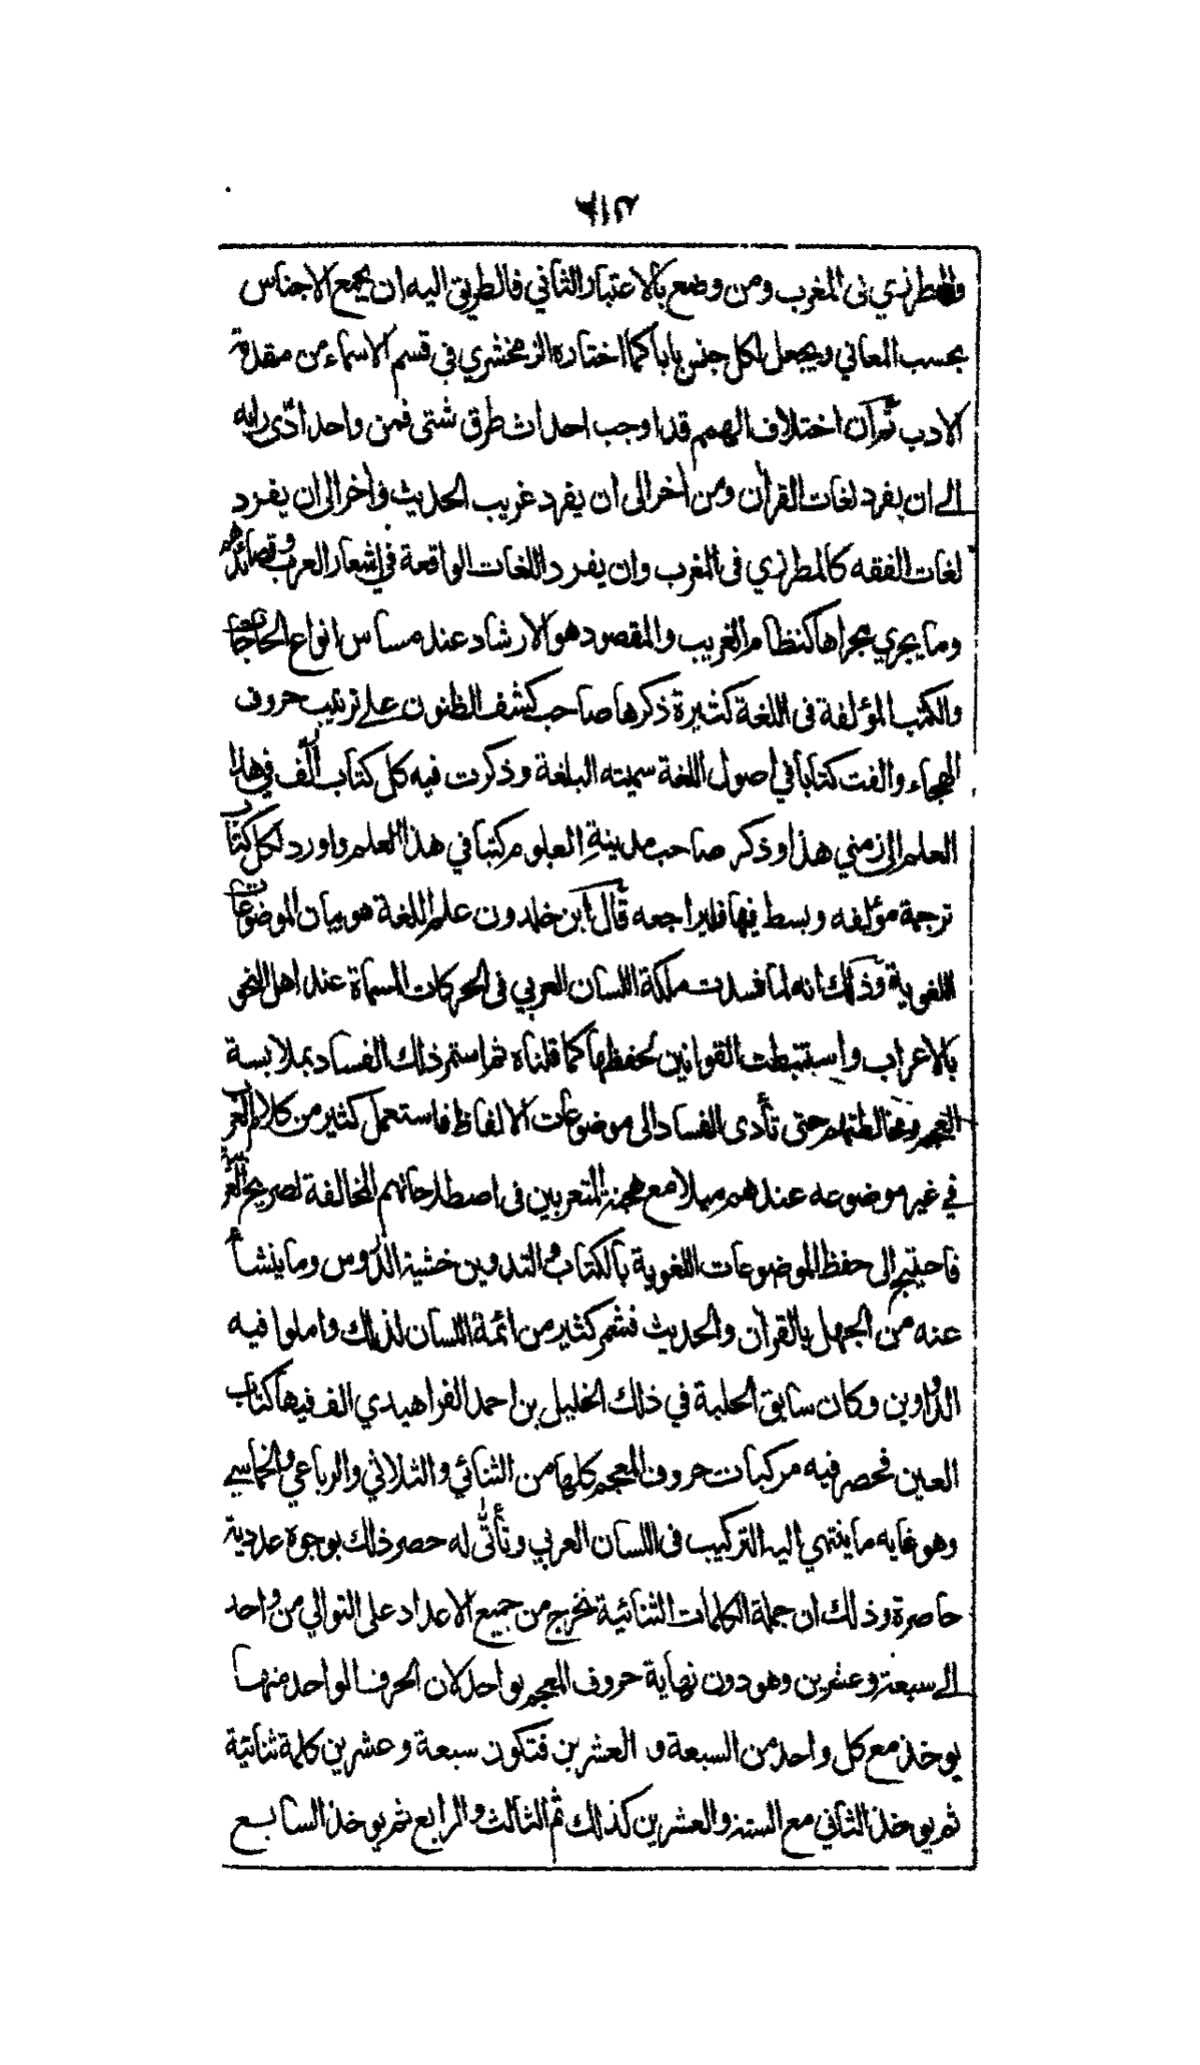 ٦١٣
والمطرزي فى المغرب ومن وضع بالاعتبار الثاني فالطريق اليه ان يجمع الاجناس
بحسب المعاني ويجعل لكل جنس بابا كما اختاره الزمخشري في قسم الاسماء من مقدمة
الادب ثم ان اختلاف الهمم قد اوجب احداث طرق شتى فمن واحد ادّى رايه
الى ان يفرد لغات القرآن ومن آخر الى ان يفرد غريب الحديث وآخر الى ان يفرد
لغات الفقه كالمطرزي فى المغرب وان يفرد اللغات الواقعة في اشعار العرب وقصائدهم
وما يجري مجراها كنظام الغريب والمقصود هو الارشاد عند مساس انواع الحاجات
والكتب المؤلفة فى اللغة كثيرة ذكرها صاحب كشف الظنون على ترتيب حروف
الهجاء والفت كتابا في اصول اللغة سميته البلغة وذكرت فيه كل كتاب اُلِّف في هذا
العلم الى زمني هذا وذكر صاحب مدينة العلوم كتبا في هذا العلم واورد لكل كتاب
ترجمة مؤلفه وبسط فيها فليراجعه قال ابن خلدون علم اللغة هو بيان الموضوعات
اللغوية وذلك انه لما فسدت ملكة اللسان العربي فى الحركات المسماة عند اهل النحو
بالاعراب واستنبطت القوانين لحفظها كما قلناه ثم استمر ذلك الفساد بملابسة
العجم ومخالطتهم حتى تأدى الفساد الى موضوعات الالفاظ فاستعمل كثير من كلام العرب
في غير موضوعه عندهم ميلا مع هجنة المتعربين فى اصطلاحاتهم المخالفة لصريح العربية
فاحتيج الى حفظ الموضوعات اللغوية بالكتاب والتدوين خشية الدروس وما ينشأ
عنه من الجهل بالقرآن والحديث فشمر كثير من ائمة اللسان لذلك واملوا فيه
الدواوين وكان سابق الحلبة في ذلك الخليل بن احمد الفراهيدي الف فيها كتاب
العين فحصر فيه مركبات حروف المعجم كلها من الثنائي والثلاثي والرباعي والخماسي
وهو غاية ما ينتهي اليه التركيب فى اللسان العربي وتأتّى له حصر ذلك بوجوه عددية
حاصرة وذلك ان جملة الكلمات الثنائية تخرج من جميع الاعداد على التوالي من واحد
الى سبعة وعشرين وهو دون نهاية حروف المعجم بواحد لان الحرف الواحد منها
يوخذ مع كل واحد من السبعة و العشرين فتكون سبعة وعشرين كلمة ثنائية
ثم يوخذ الثاني مع الستة والعشرين كذلك ثم الثالث والرابع ثم يوخذ السابع